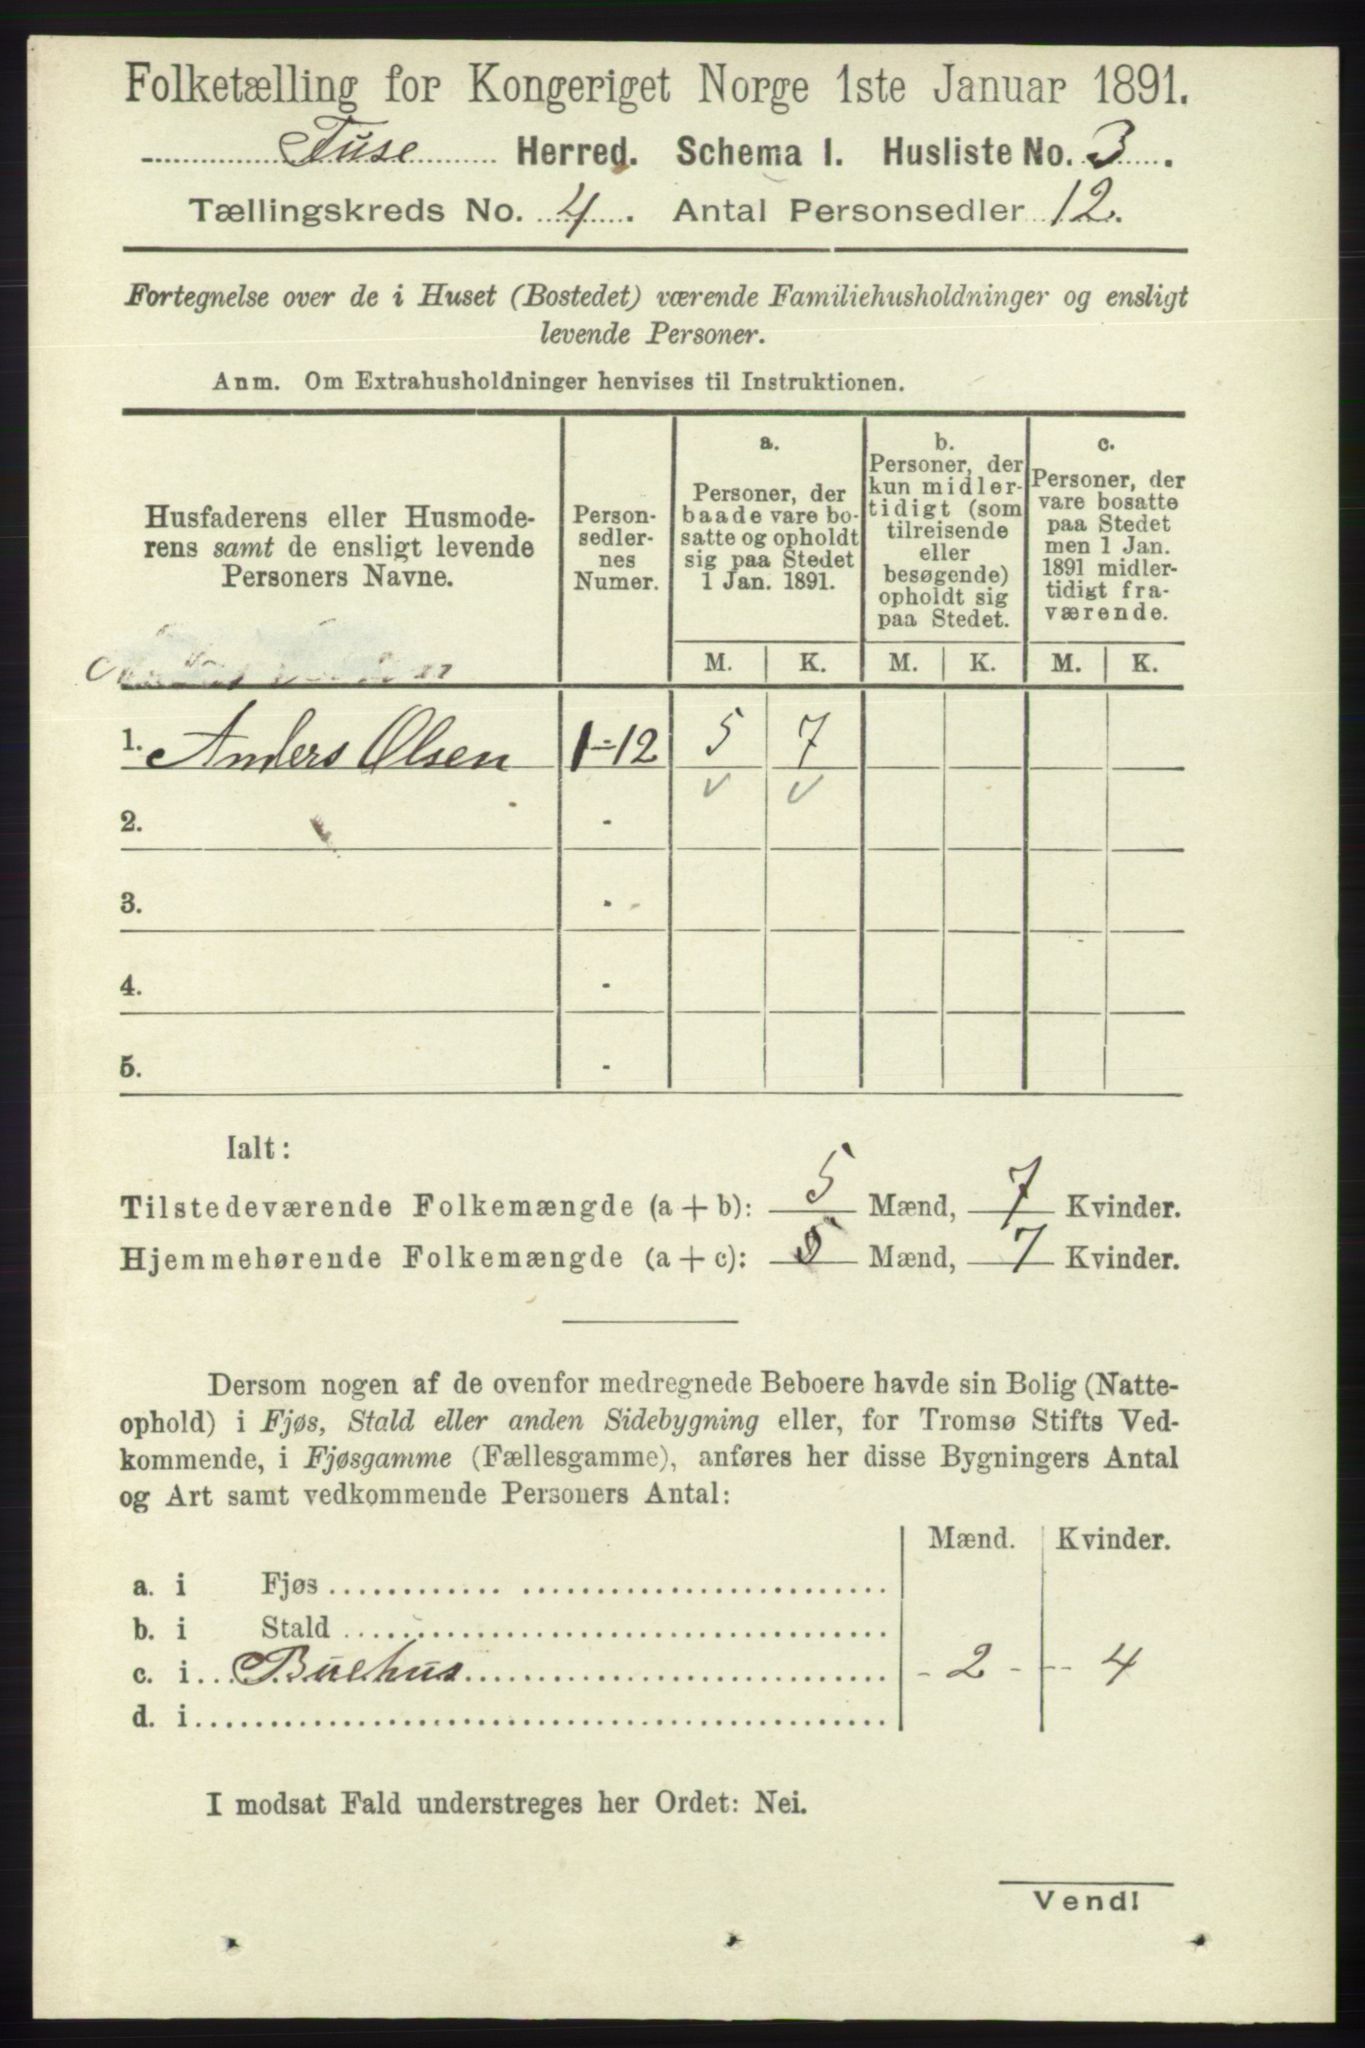 Folketælling for Kongeriget Norge 1ste Januar 1891.
Fuse Herred. Schema I. Husliste No. 3.
Tællingskreds No. 4. Antal Personsedler 12.
Fortegnelse over de i Huset (Bostedet) værende Familiehusholdninger og ensligt
levende Personer.
Anm. Om Extrahusholdninger henvises til Instruktionen.
Husfaderens eller Husmode-
rens samt de ensligt levende
Personers Navne.
Person-
sedler-
nes
Numer.
a.
Personer, der
baade vare bo-
satte og opholdt
sig paa Stedet
1 Jan. 1891.
b.
Personer, der
kun midler-
tidigt (som
tilreisende
eller
besøgende)
opholdt sig
paa Stedet.
c.
Personer, der
vare bosatte
paa Stedet
men 1 Jan.
1891 midler-
tidigt fra-
værende.
M. K. M. K. M. K.
1. Anders Olsen 1-12 5 7
2. -
3. -
4. -
5. -
Ialt:
Tilstedeværende Folkemængde (a + b): 5 Mænd, 7 Kvinder.
Hjemmehørende Folkemængde (a + c): 5 Mænd, 7 Kvinder.
Dersom nogen af de ovenfor medregnede Beboere havde sin Bolig (Natte-
ophold) i Fjøs, Stald eller anden Sidebygning eller, for Tromsø Stifts Ved-
kommende, i Fjøsgamme (Fællesgamme), anføres her disse Bygningers Antal
og Art samt vedkommende Personers Antal:
Mænd. Kvinder.
a. i Fjøs
b. i Stald
c. i Buehus - 2 - - 4
d. i
I modsat Fald understreges her Ordet: Nei.
Vend!